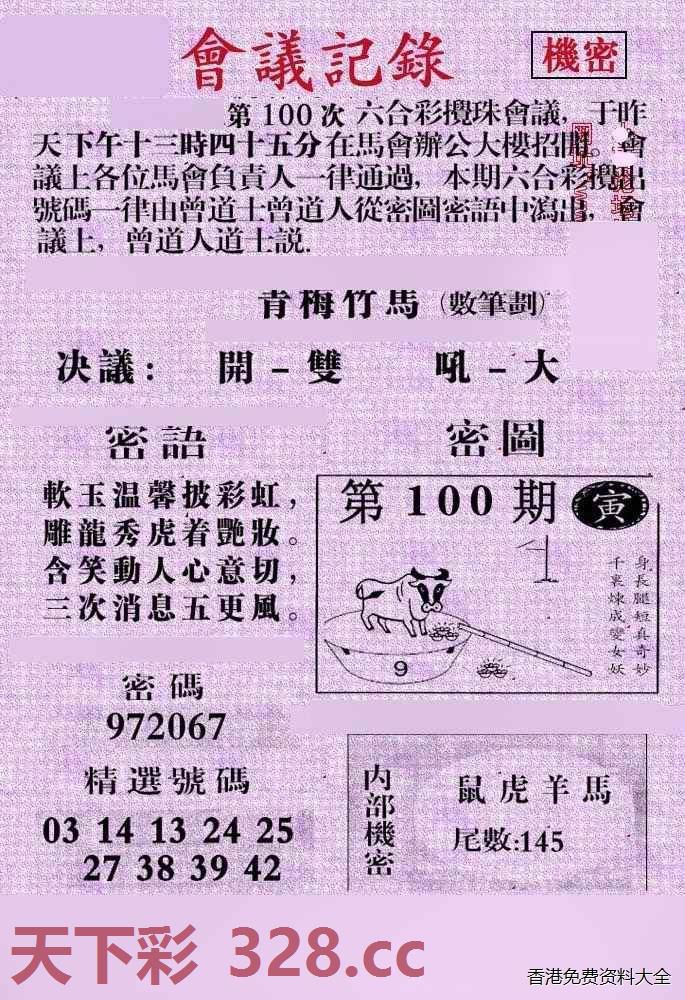 會議記錄
機密
第100次 六合彩攪珠會議，于昨
天下午十三時四十五分在馬會辦公大樓招開。會
議上各位馬會負責人一律通過，本期六合彩攪出
號碼一律由曾道士曾道人從密圖密語中瀉出，會
議上，曾道人道士説.
青梅竹馬（數筆劃）
决議：開－雙 吼－大
密語
軟玉温馨披彩虹，
雕龍秀虎着艷妝。
含笑動人心意切，
三次消息五更風。
密圖
第100期 寅
身長腿短真奇妙
千裏煉成變女妖
9
密碼
972067
精選號碼
03 14 13 24 25
27 38 39 42
内部機密
鼠虎羊馬
尾數:145
天下彩 328.cc
香港免费资料大全